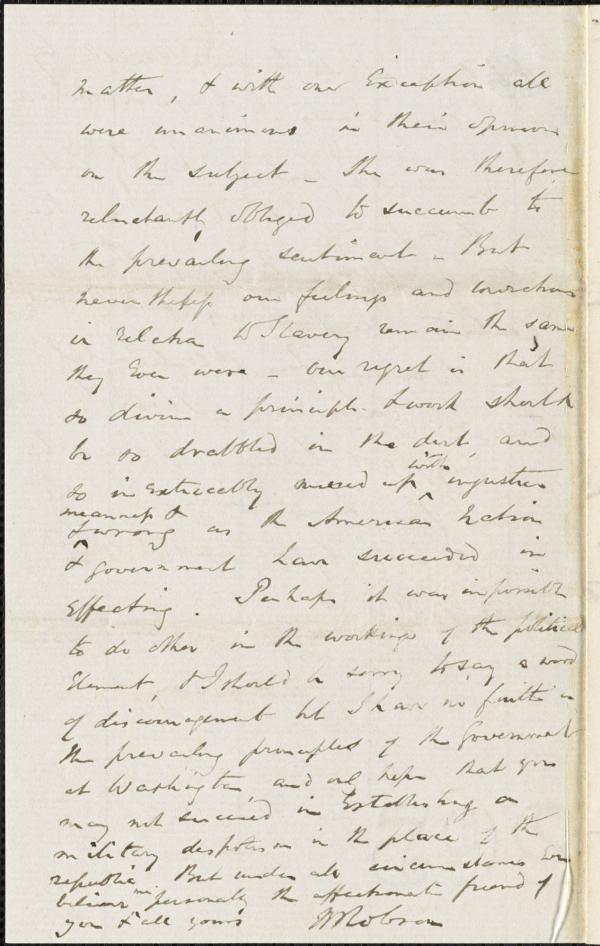 matter, & with one Exception all
were unanimous in their opinion
on the subject - She was therefore
reluctantly obliged to succumb to
the prevailing sentiment - But
nevertheless our feelings and convictions
in relation to Slavery remain the same
they Ever were - our regret is that
so divine a principle & work should
be so drabbled in the dirt, and
so inextricably mixed up with injustice
meanness &
& wrong as the American Nation
& government have succeeded in
Effecting. Perhaps it was impossible
to do other in the workings of the political
Element, & I should be sorry to say a word
of discouragement but I have no faith in
the prevailing principles of the Government
at Washington, and only hope that you
may not succeed in Establishing a
military despotism in the place of the
republic. But under all circumstances Ever
believe me personally the affectionate friend of
you & all yours W Robson